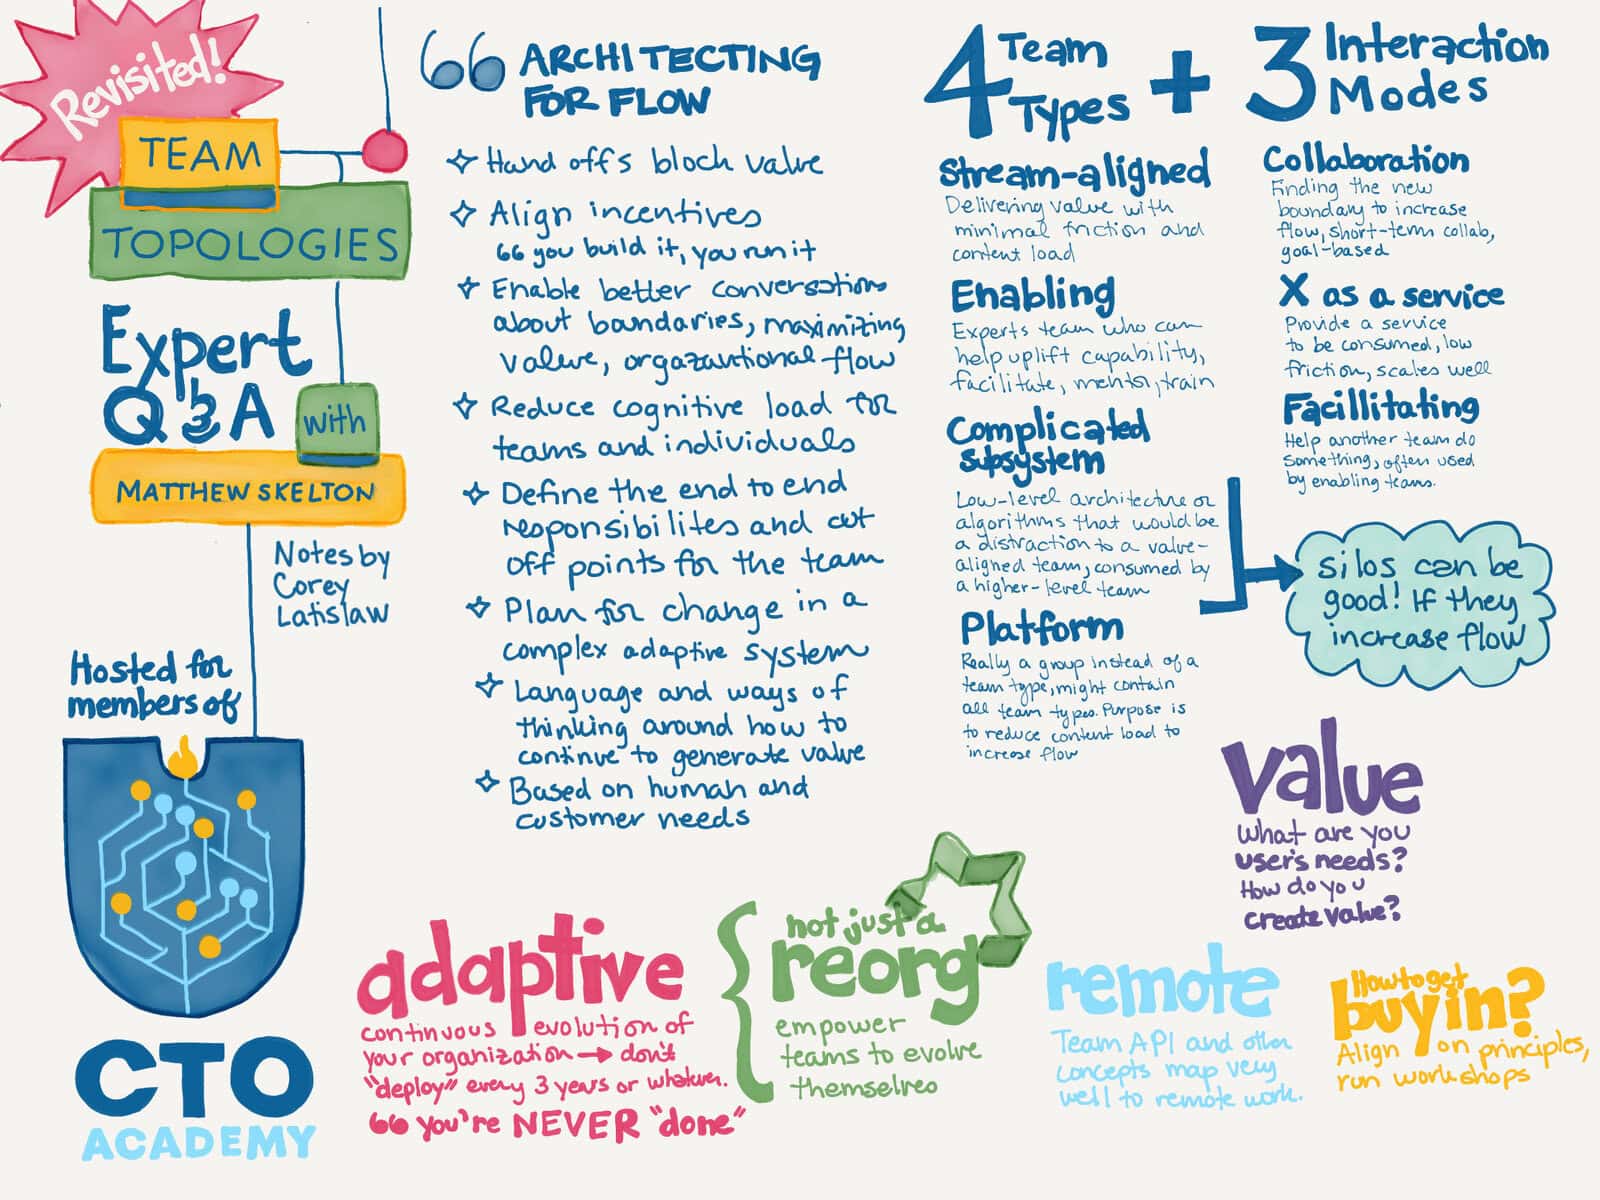 Revisited!
TEAM
TOPOLOGIES
Expert
Q&A
with
MATTHEW SKELTON
Notes by
Corey
Latislaw
Hosted for
members of
CTO
ACADEMY
66 ARCHITECTING
FOR FLOW
Hand offs block value
Align incentives
66 you build it, you run it
Enable better conversations
about boundaries, maximizing
value, orgazautional flow
Reduce cognitive load for
teams and individuals
Define the end to end
responsibilites and cut
off points for the team
Plan for change in a
complex adaptive system
Language and ways of
thinking around how to
continue to generate value
Based on human and
customer needs
4 Team
Types
+
3 Interaction
Modes
Stream-aligned
Delivering value with
minimal friction and
content load
Enabling
Experts team who can
help uplift capability,
facilitate, mentor, train
Complicated
subsystem
Low-level architecture or
algorithms that would be
a distraction to a value-
aligned team, consumed by
a higher-level team
Platform
Really a group instead of a
team type, might contain
all team types. Purpose is
to reduce content load to
increase flow
Collaboration
Finding the new
boundary to increase
flow, short-term collab,
goal-based
X as a service
Provide a service
to be consumed, low
friction, scales well
Facillitating
Help another team do
something, often used
by enabling teams.
silos can be
good! If they
increase flow
value
What are you
user's needs?
How do you
create value?
adaptive
continuous evolution of
your organization → don't
"deploy" every 3 years or whatever.
66 you're NEVER "done"
not just a
reorg
empower
teams to evolve
themselves
remote
Team API and other
concepts map very
well to remote work.
How to get
buyin?
Align on principles,
run workshops